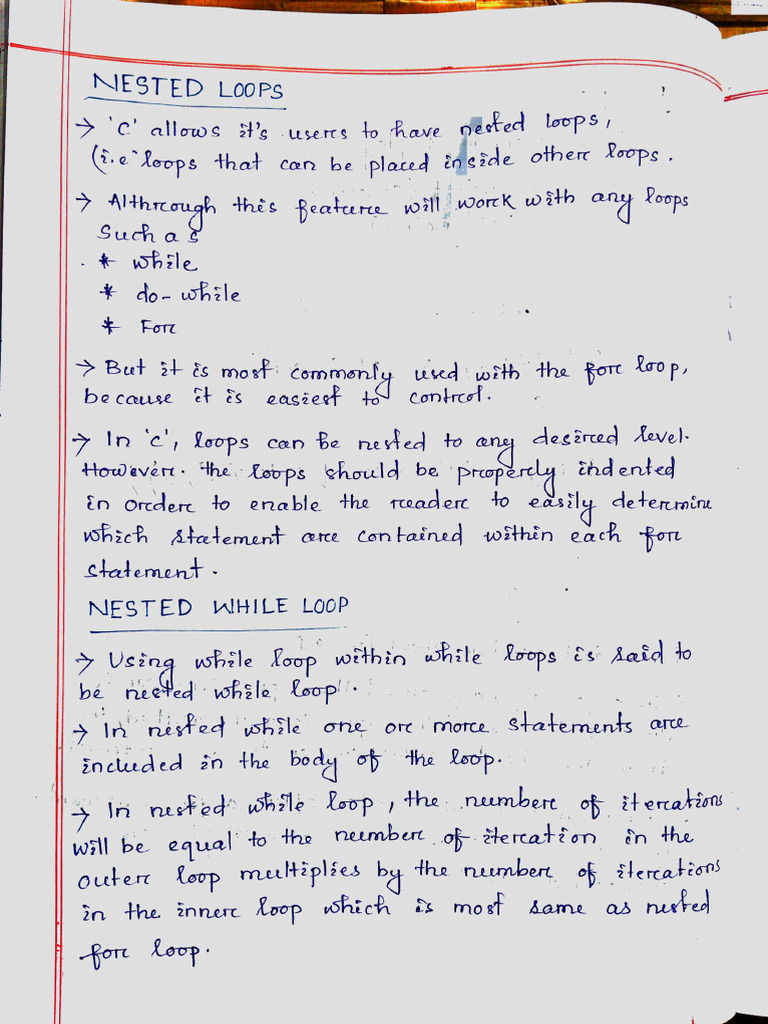 NESTED LOOPS
→ 'C' allows it's users to have nested loops,
(i.e loops that can be placed inside other loops.
→ Although this feature will work with any loops
Such as
* while
* do-while
* For
→ But it is most commonly used with the for loop,
because it is easiest to control.
→ In 'C', loops can be nested to any desired level.
However. the loops should be properly indented
in order to enable the reader to easily determine
which statement are contained within each for
statement.
NESTED WHILE LOOP
→ Using while loop within while loops is said to
be nested while loop.
→ In nested while one or more statements are
included in the body of the loop.
→ In nested while loop, the number of iterations
will be equal to the number of iteration in the
outer loop multiplies by the number of iterations
in the inner loop which is most same as nested
for loop.